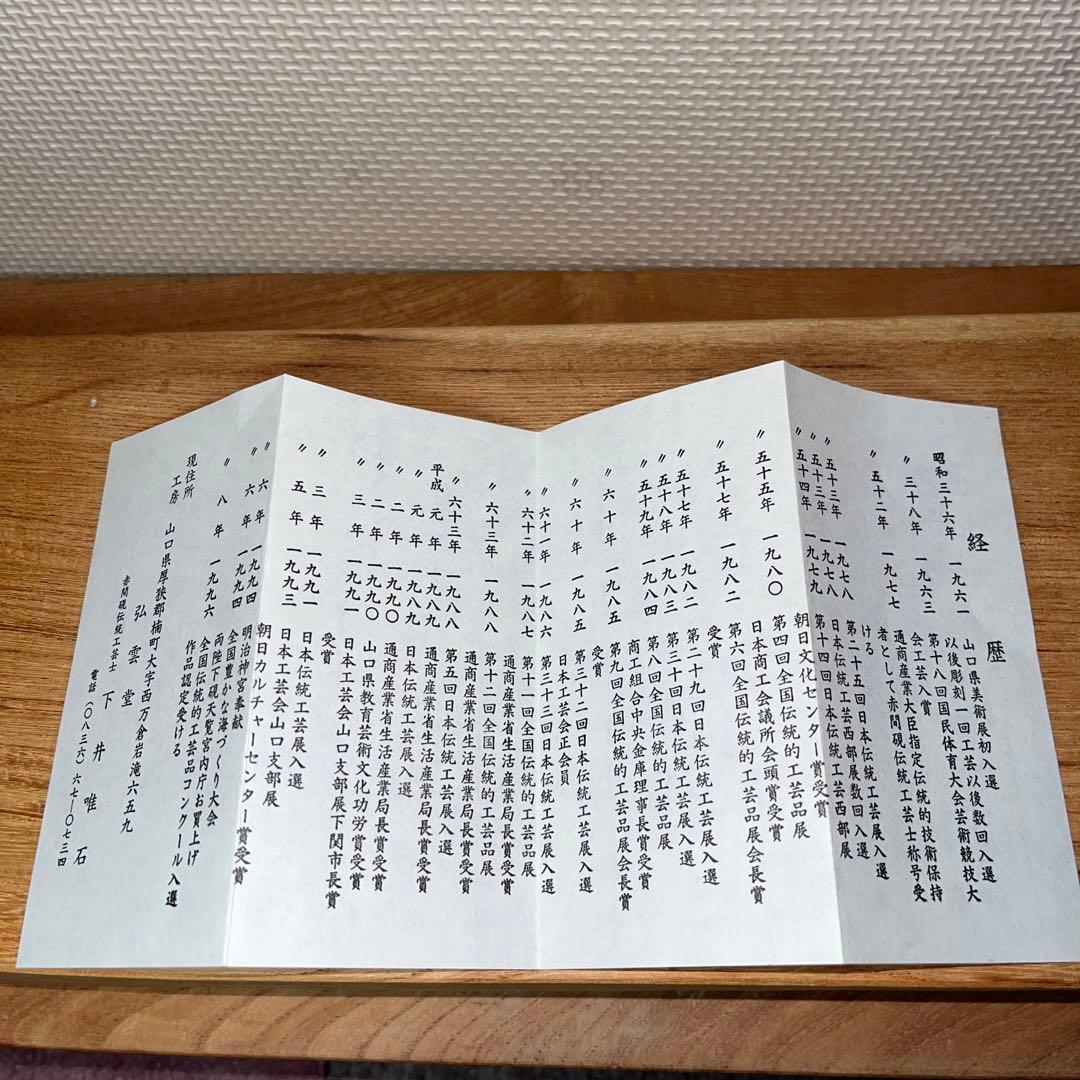 経歴
昭和三十六年 一九六一 山口県美術展初入選
以後彫刻一回工芸以後数回入選
〃 三十八年 一九六三 第十八回国民体育大会芸術競技大
会工芸入賞
〃 五十二年 一九七七 通商産業大臣指定伝統的技術保持
者として赤間硯伝統工芸士称号受
ける
〃 五十三年 一九七八 第二十五回日本伝統工芸展入選
〃 五十三年 一九七八 日本伝統工芸西部展数回入選
〃 五十四年 一九七九 第十四回日本伝統工芸西部展
朝日文化センター賞受賞
〃 五十五年 一九八〇 第四回全国伝統的工芸品展
日本商工会議所会頭賞受賞
〃 五十七年 一九八二 第六回全国伝統的工芸品展会長賞
受賞
〃 五十七年 一九八二 第二十九回日本伝統工芸展入選
〃 五十八年 一九八三 第三十回日本伝統工芸展入選
〃 五十九年 一九八四 第八回全国伝統的工芸品展
商工組合中央金庫理事長賞受賞
〃 六十年 一九八五 第九回全国伝統的工芸品展会長賞
受賞
〃 六十年 一九八五 第三十二回日本伝統工芸展入選
日本工芸会正会員
〃 六十一年 一九八六 第三十三回日本伝統工芸展入選
〃 六十二年 一九八七 第十一回全国伝統的工芸品展
通商産業省生活産業局長賞受賞
〃 六十三年 一九八八 第十二回全国伝統的工芸品展
通商産業省生活産業局長賞受賞
〃 六十三年 一九八八 第五回日本伝統工芸展入選
平成 元年 一九八九 通商産業省生活産業局長賞受賞
〃 元年 一九八九 日本伝統工芸展入選
〃 二年 一九九〇 通商産業省生活産業局長賞受賞
〃 二年 一九九〇 山口県教育芸術文化功労賞受賞
〃 三年 一九九一 日本工芸会山口支部展下関市長賞
受賞
〃 三年 一九九一 日本伝統工芸展入選
〃 五年 一九九三 日本工芸会山口支部展
朝日カルチャーセンター賞受賞
〃 六年 一九九四 明治神宮奉献
〃 六年 一九九四 全国豊かな海づくり大会
両陛下硯天覧宮内庁お買上げ
〃 八年 一九九六 全国伝統的工芸品コンクール入選
作品認定受ける
現住所
工房 山口県厚狭郡楠町大字西万倉岩滝六五九
弘雲堂
赤間硯伝統工芸士 下井唯石
電話(〇八三六)六七ー〇七三四